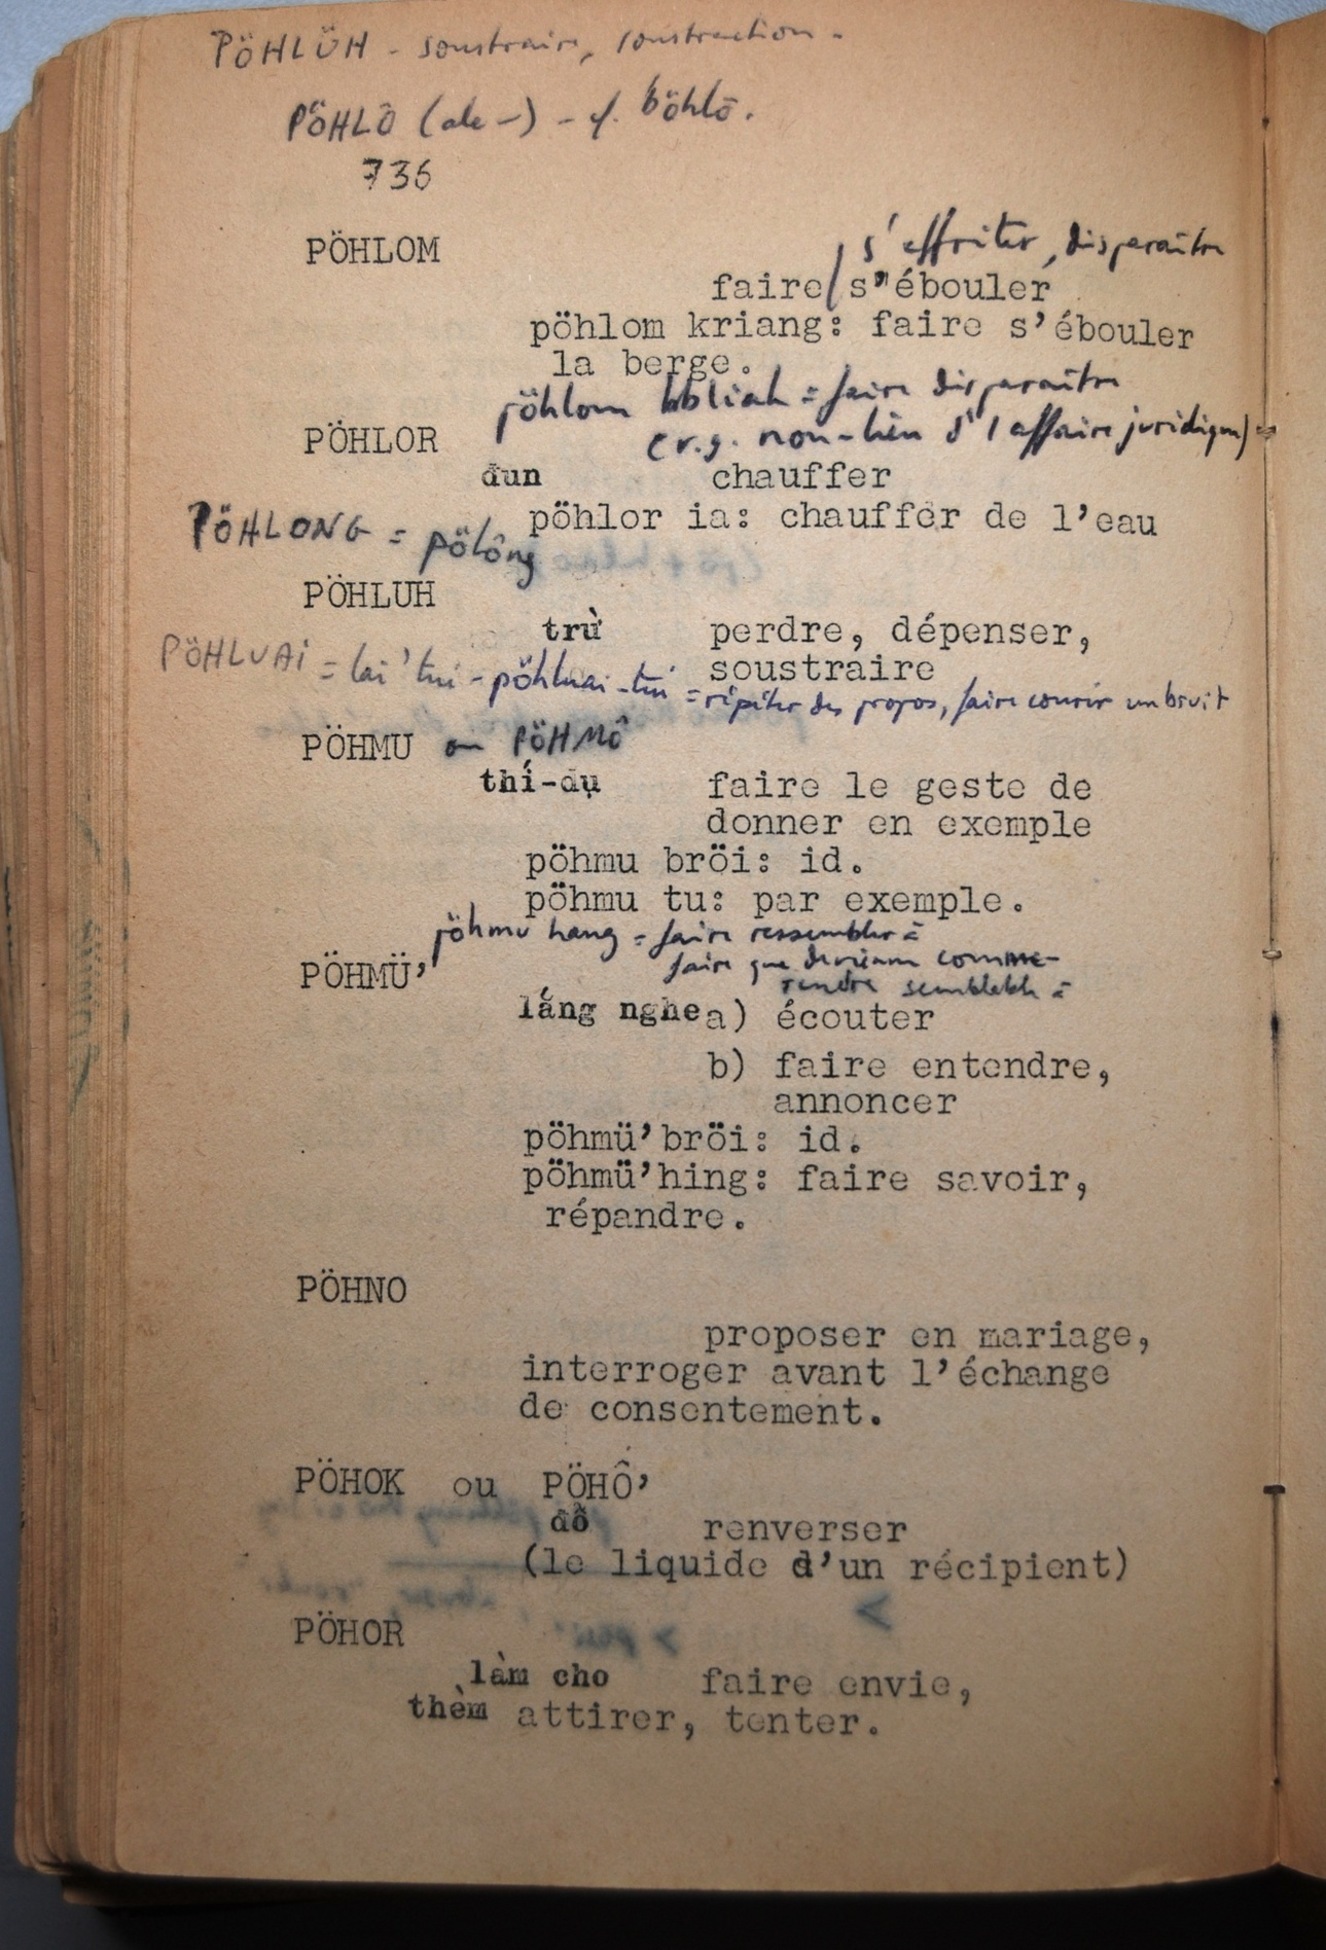 PÖHLÜH - soustraire, soustraction -
PÖHLÔ (ale -) - cf. böhlô.
736
PÖHLOM
s'effriter, disparaître
faire s'ébouler
pöhlom kriang: faire s'ébouler
la berge.
pöhlom bbliah = faire disparaître
(v.g. non-lieu d' 1 affaire juridique)
PÖHLOR
đun chauffer
pöhlor ia: chauffer de l'eau
PÖHLONG = pölông
PÖHLUH
trừ perdre, dépenser,
soustraire
PÖHLUAI = lai' tui - pöhluai - tui = répéter des propos, faire courir un bruit
PÖHMU ou PÖHMÔ
thí-dụ faire le geste de
donner en exemple
pöhmu bröi: id.
pöhmu tu: par exemple.
pöhmu hang = faire ressembler à
faire que devienne comme -
rendre semblable à
PÖHMÜ'
lắng nghe a) écouter
b) faire entendre,
annoncer
pöhmü'bröi: id.
pöhmü'hing: faire savoir,
répandre.
PÖHNO
proposer en mariage,
interroger avant l'échange
de consentement.
PÖHOK ou PÖHÔ'
đổ renverser
(le liquide d'un récipient)
PÖHOR
làm cho faire envie,
thèm attirer, tenter.